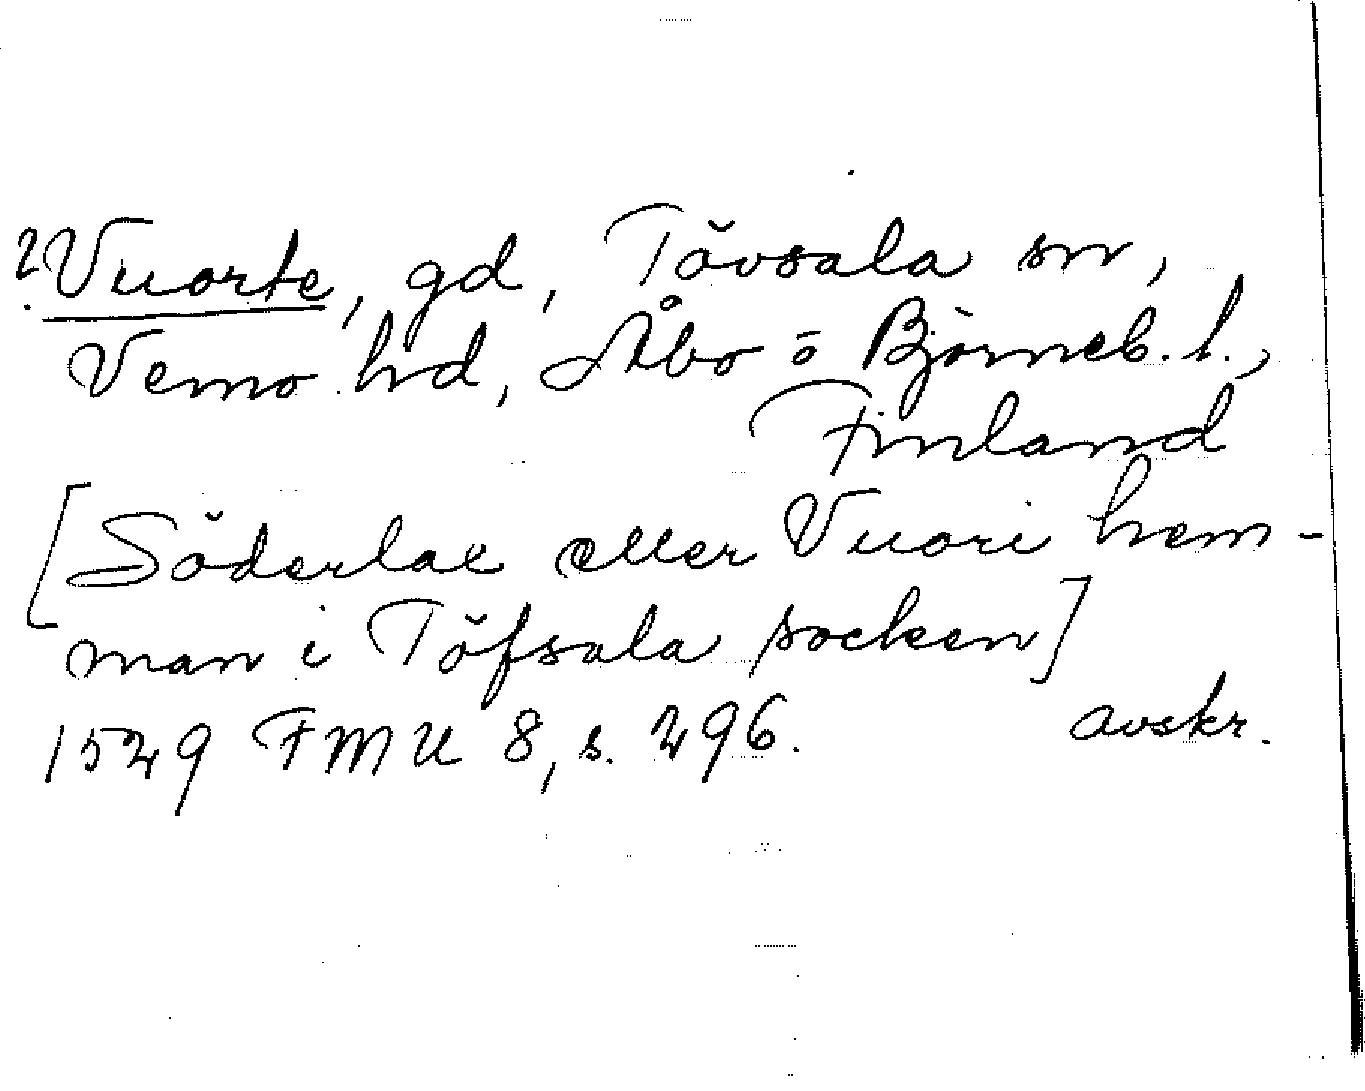 ?Vuorte, gd, Tövsala sn,
Vemo hd, Åbo o Björneb. l.,
Finland
[Söderlax eller Vuori hem-
man i Töfsala socken]
1529 FMU 8, s. 296. avskr.